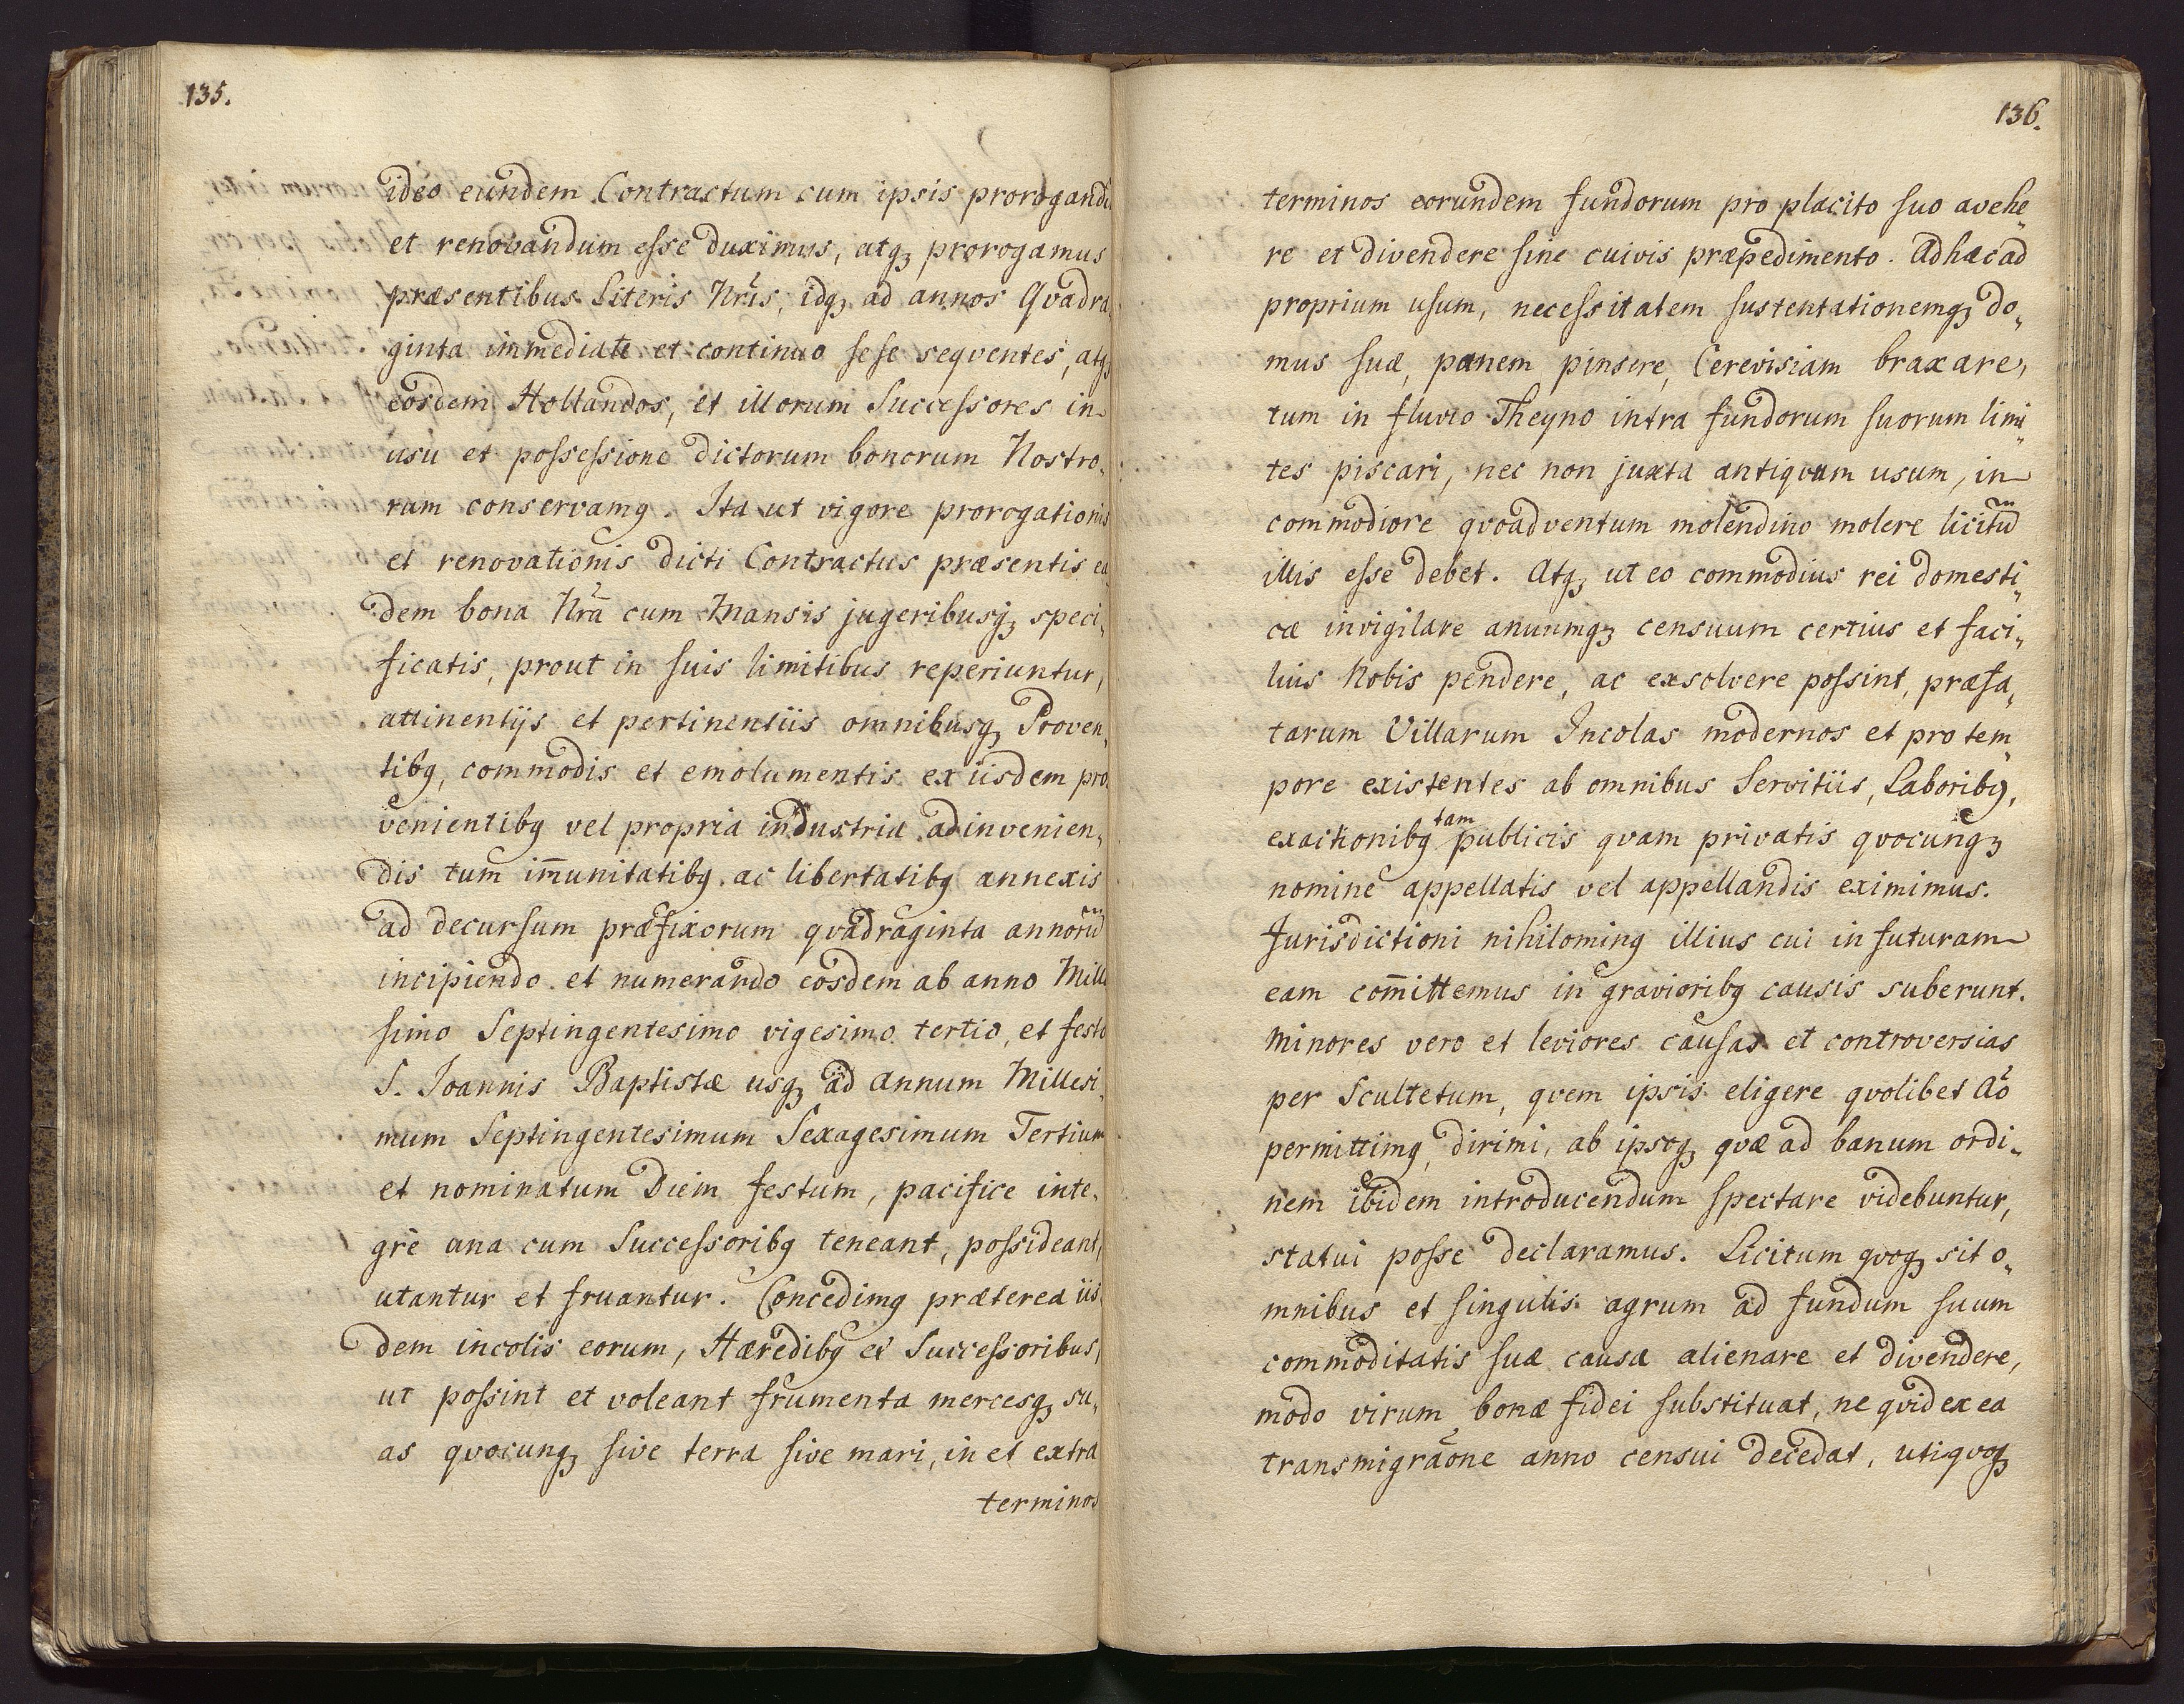 135.
ideo eundem Contractum cum ipsis prorogandū
et renovandum esse duximus, atqꝫ prorogamus
præsentibus Literis Nrĩs, idqꝫ ad annos Qvadra„
ginta immediate et continuo sese seqventes, atqꝫ
eosdem Hollandos, et illorum Successores in
usu et possessione dictorum bonorum Nostro„
rum conservamꝯ. Ita ut vigore prorogationis
et renovationis dicti Contractus præsentis ea
dem bona Nrã cum Mansis jugeribusqꝫ speci„
ficatis, prout in suis limitibus reperiuntur,
attinentijs et pertinentiis omnibusqꝫ Proven„
tibꝯ, commodis et emolumentis ex iisdem pro„
venientibꝯ vel propria industria adinvenien„
dis tum im̄unitatibꝯ ac libertatibꝯ annexis
ad decursum præfixorum qvadraginta annorū
incipiendo et numerando eosdem ab anno Mille
simo Septingentesimo vigesimo tertio, et festo
S. Joannis Baptistæ usqꝫ ad annum Millesi„
mum Septingentesimum Sexagesimum Tertium
et nominatum Diem festum, pacifice inte„
grè una cum Successoribꝯ teneant, possideant,
utantur et fruantur. Concedimꝯ præterea iis„
dem incolis eorum, Hæredibꝯ et Successoribus,
ut possint et voleant frumenta mercesqꝫ su„
as qvocunqꝫ sive terra sive mari, in et extra
terminos
136.
terminos eorundem fundorum pro placito suo avehe„
re et divendere sine cuivis præpedimento. Adhæc ad
proprium usum, necessitatem sustentationemqꝫ do„
mus suæ, panem pinsere, Cerevisiam braxare,
tum in fluvio Theyno intra fundorum suorum limi„
tes piscari, nec non juxta antiqvum usum, in
commodiore qvoadventum molendino molere licitū
illis esse debet. Atqꝫ ut eo commodius rei domesti„
cæ invigilare anuumqꝫ censuum certius et faci„
lius Nobis pendere, ac exsolvere possint, præfa„
tarum Villarum Incolas modernos et pro tem„
pore existentes ab omnibus Servitiis, Laboribꝯ,
exactionibꝯ tam publicis qvam privatis qvocunqꝫ
nomine appellatis vel appellandis eximimus.
Jurisdictioni nihilominꝯ illius cui in futuram
eam com̄ittemus in gravioribꝯ causis suberunt.
Minores vero et leviores causas et controversias
per Scultetum, qvem ipsis eligere qvolibet Aõ
permittimꝯ, dirimi, ab ipsoqꝫ qvæ ad banum ordi„
nem ibidem introducendum spectare videbuntur,
statui posse declaramus. Licitum qvoqꝫ sit o„
mnibus et singulis agrum ad fundum suum
commoditatis suæ causa alienare et divendere,
modo virum bonæ fidei substituat, ne qvid ex ea
transmigraõne anno censui decedat, uti qvoqꝫ